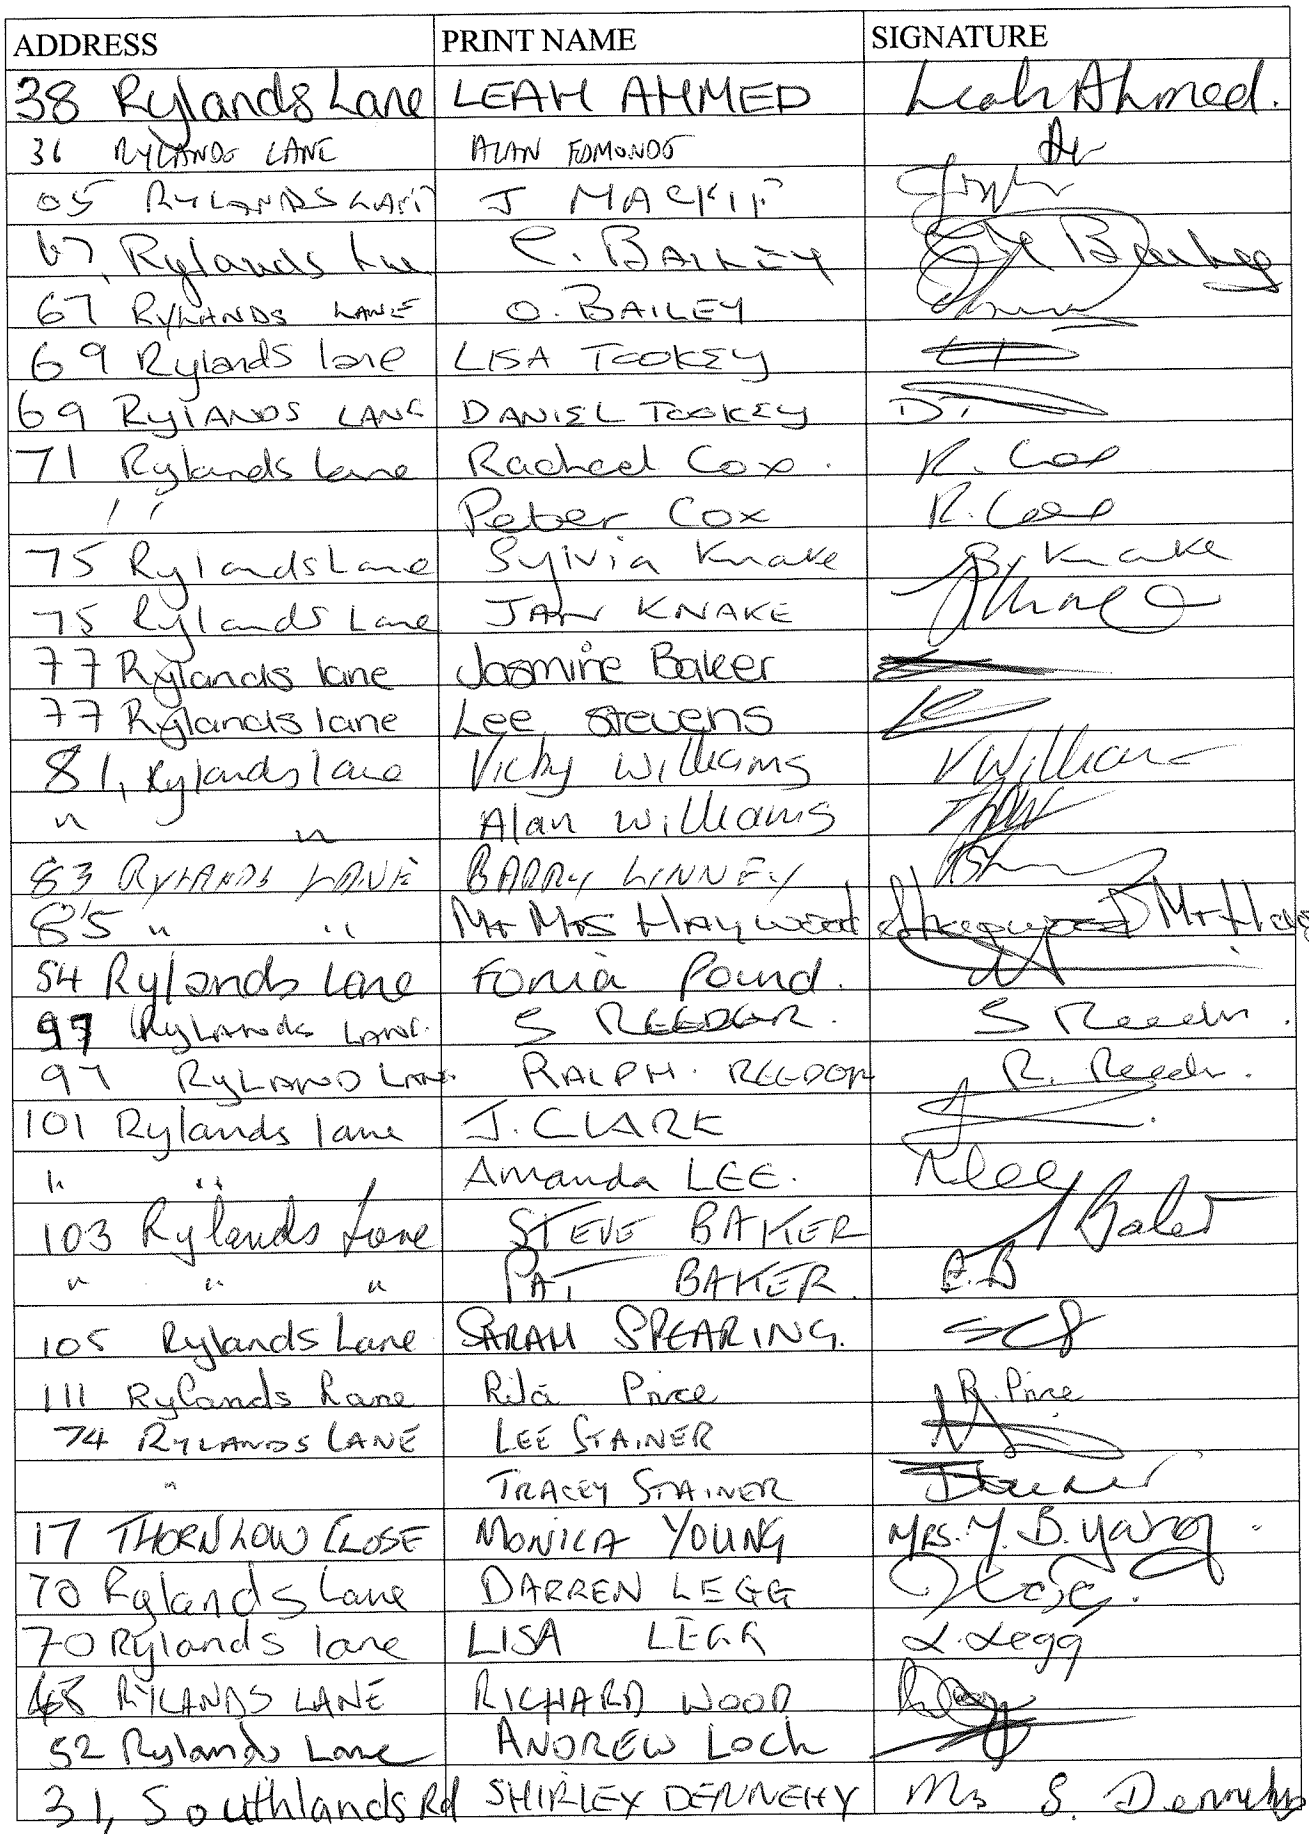 ADDRESS PRINT NAME SIGNATURE
38 Rylands Lane LEAH AHMED Leah Ahmed.
36 RYLANDS LANE ALAN EDMONDS
65 RYLANDS LANE J MACKIE
67, Rylands Lne C. BAILEY
67 RYLANDS LANE O. BAILEY
69 Rylands lane LISA TOOKEY
69 RYLANDS LANE DANIEL TOOKEY
71 Rylands Lane Rachael Cox. R. Cox
" Peter Cox R. Cox
75 Rylands Lane Sylvia Knake S. Knake
75 Rylands Lane JAN KNAKE
77 Rylands lane Jasmine Baker
77 Rylands lane Lee Stevens
81, Rylands lane Vicky Williams V Williams
" " Alan Williams
83 RYLANDS LANE BARRY LINNEY
85 " " Mr Mrs HAYWOOD
54 Rylands Lane Pound.
97 RYLANDS LANE. S REEDER. S Reeder.
97 RYLAND LANE RALPH. REEDER R. Reeder.
101 Rylands lane J. CLARK
" " Amanda LEE. A Lee
103 Rylands Lane STEVE BAKER S Baker
" " " PAT BAKER. P.B
105 Rylands Lane SARAH SPEARING. SCS
111 Rylands Lane Rita Price R. Price
74 RYLANDS LANE LEE STAINER
" TRACEY STAINER
17 THORNLOW CLOSE MONICA YOUNG MRS. M. B. Young.
70 Rylands Lane DARREN LEGG
70 Rylands lane LISA LEGG L. Legg
48 RYLANDS LANE RICHARD WOOD
52 Rylands Lane ANDREW LOCK
31, Southlands Rd SHIRLEY DENNEHY Mrs S. Dennehy